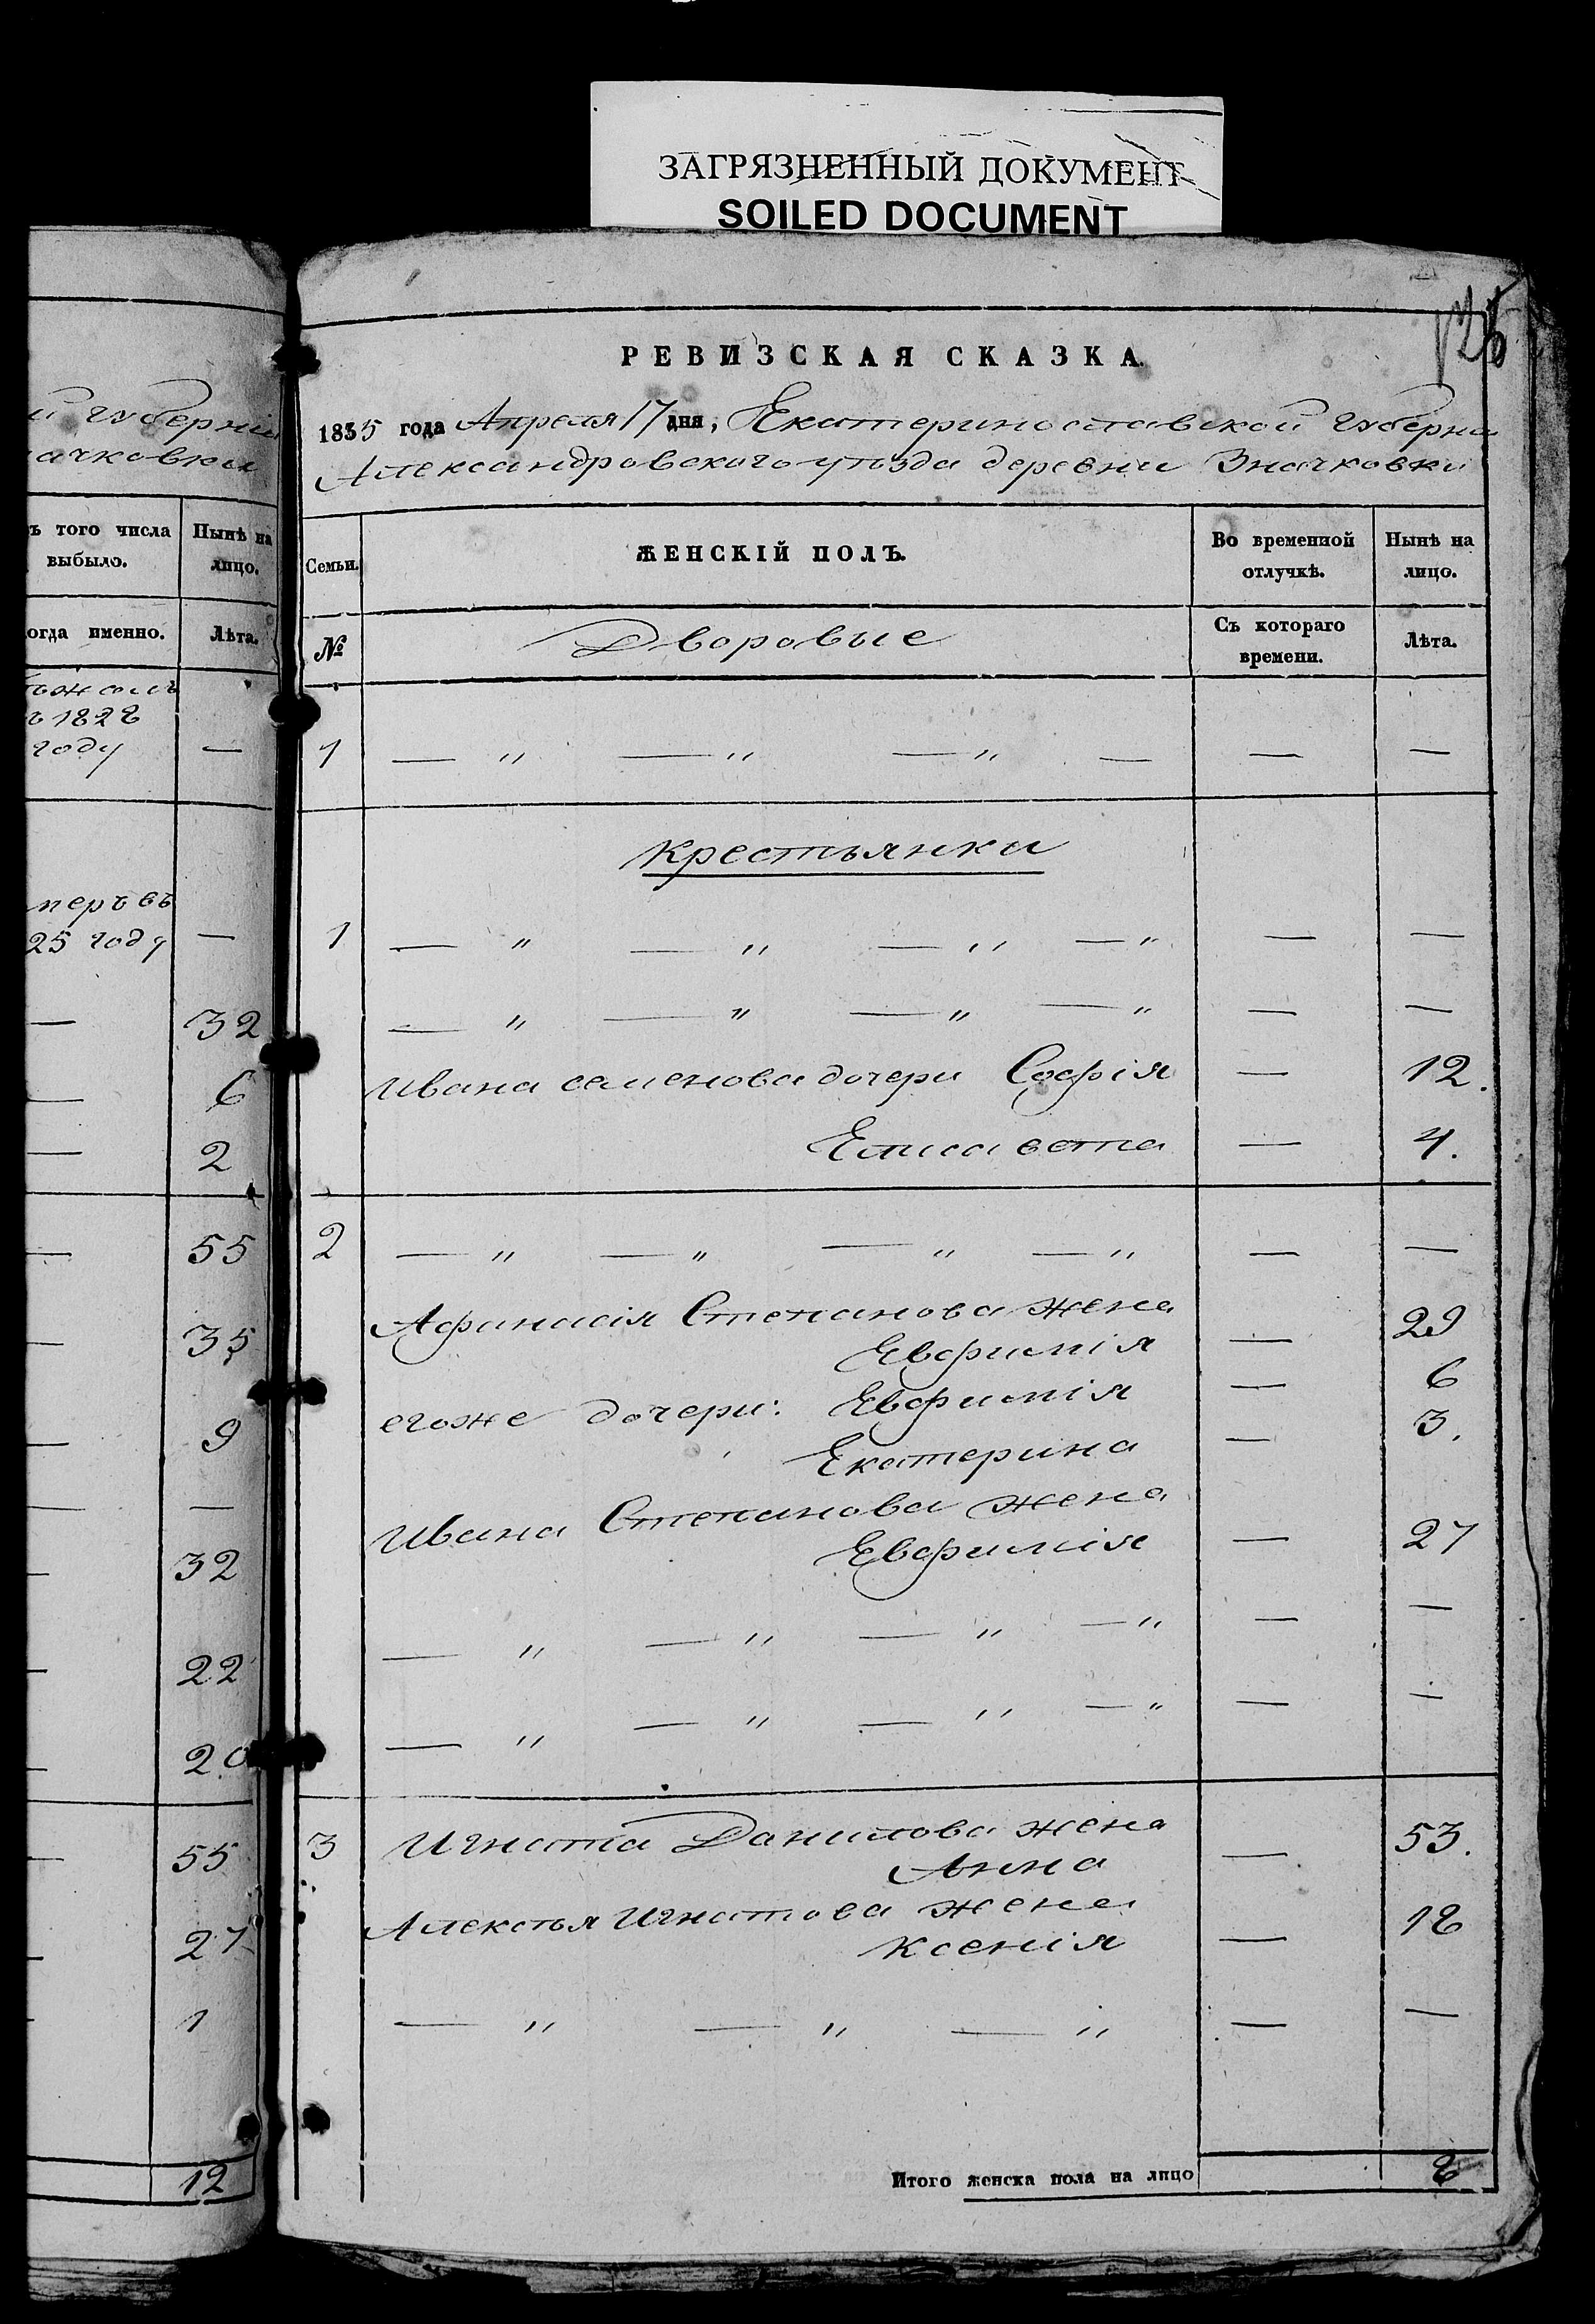 ЗАГРЯЗНЕННЫЙ ДОКУМЕНТ
SOILED DOCUMENT
й губерніи
ачковки
ъ того числа
выбыло.
Нынѣ на
лицо.
огда именно.
Лѣта.
ъ 1828
году
—
меръ въ
25 году —
— 32
— 6
— 2
— 55
— 35
— 9
— —
— 32
— 22
— 20
— 55
— 27
— 1
12
РЕВИЗСКАЯ СКАЗКА
1835 года Апреля 17 дня, Екатеринославской губерніи
Александровского уѣзда деревни Значковки
Семьи.
ЖЕНСКІЙ ПОЛЪ.
Во временной
отлучкѣ.
Нынѣ на
лицо.
№
Дворовые
Съ котораго
времени.
Лѣта.
1 — „ — „ — „ — — —
Крестьянки
1 — „ — „ — „ — „ — —
— „ — „ — „ — „ — —
Ивана Семенова дочери Софія — 12.
Елисавета — 4.
2 — „ — „ — „ — „ — —
Афанасія Степанова жена
Евфимія — 29
егоже дочери: Евфимія — 6
Екатерина — 3.
Ивана Степанова жена
Евфимія — 27
— „ — „ — „ — „ — —
— „ — „ — „ — „ — —
3 Игната Данилова жена
Анна — 53.
Алексѣя Игнатова жена
Ксенія — 18
— „ — „ — „ — —
Итого женска пола на лицо 8